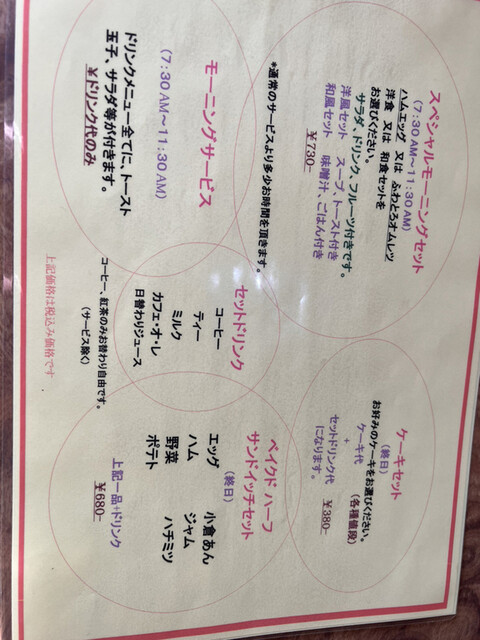 スペシャルモーニングセット
(7:30 AM～11:30 AM)
ハムエッグ 又は ふわとろオムレツ
洋食 又は 和食セットを
お選びください。
サラダ、ドリンク、フルーツ付きです。
洋風セット スープ、トースト付き
和風セット 味噌汁、ごはん付き
￥730-
*通常のサービスより多少お時間を頂きます。
モーニングサービス
(7:30 AM～11:30 AM)
ドリンクメニュー全てに、トースト
玉子、サラダ等が付きます。
￥ドリンク代のみ
ケーキセット
(終日)
お好みのケーキをお選びください。
ケーキ代 (各種値段)
+
セットドリンク代 ￥380-
になります。
セットドリンク
コーヒー
ティー
ミルク
カフェ・オ・レ
日替わりジュース
コーヒー、紅茶のみお替わり自由です。
(サービス除く)
ベイクド ハーフ
サンドイッチセット
(終日)
エッグ 小倉あん
ハム ジャム
野菜 ハチミツ
ポテト
上記一品+ドリンク
￥680-
上記価格は税込み価格です